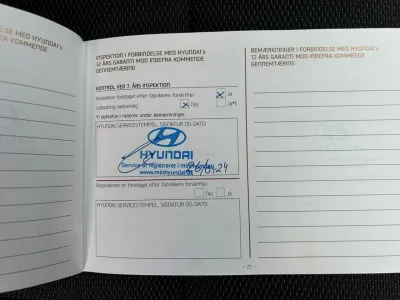 LSE MED HYUNDAI's
RA KOMMENDE
INSPEKTION I FORBINDELSE MED HYUNDAI's
12 ÅRS GARANTI MOD INDEFRA KOMMENDE
GENNEMTÆRING
KONTROL VED 7. ÅRS INSPEKTION
Inspektion foretaget efter fabrikkens forskrifter
Ja
Udbedring nødvendig
Nej
Ja*)
*) defekt(er) noteres under bemærkninger.
HYUNDAI SERVICESTEMPEL, SIGNATUR OG DATO
HYUNDAI
Service er registreret i min
www.minhyundai.dk
Reparationer er foretaget efter fabrikkens forskrifter
Nej
Ja
HYUNDAI SERVICESTEMPEL, SIGNATUR OG DATO
- 21 -
BEMÆRKNINGER I FORBINDELSE MED HYUNDAI's
12 ÅRS GARANTI MOD INDEFRA KOMMENDE
GENNEMTÆRING